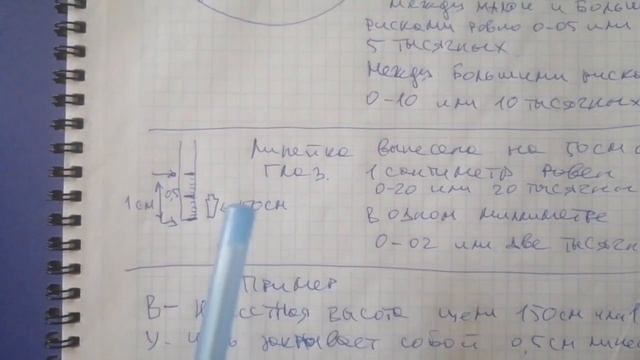 между малой и больш
рисками ровно 0-05 или
5 тысячных
между большими риска
0-10 или 10 тысячных
Линейка вынесена на 50см о
глаз. 1 сантиметр равен
0-20 или 20 тысячны
1см 0,5 50см
В одном миллиметре
0-02 или две тысячн
Пример
В- высота цели 150см или 1
У- закрывает собой 0,5см линей